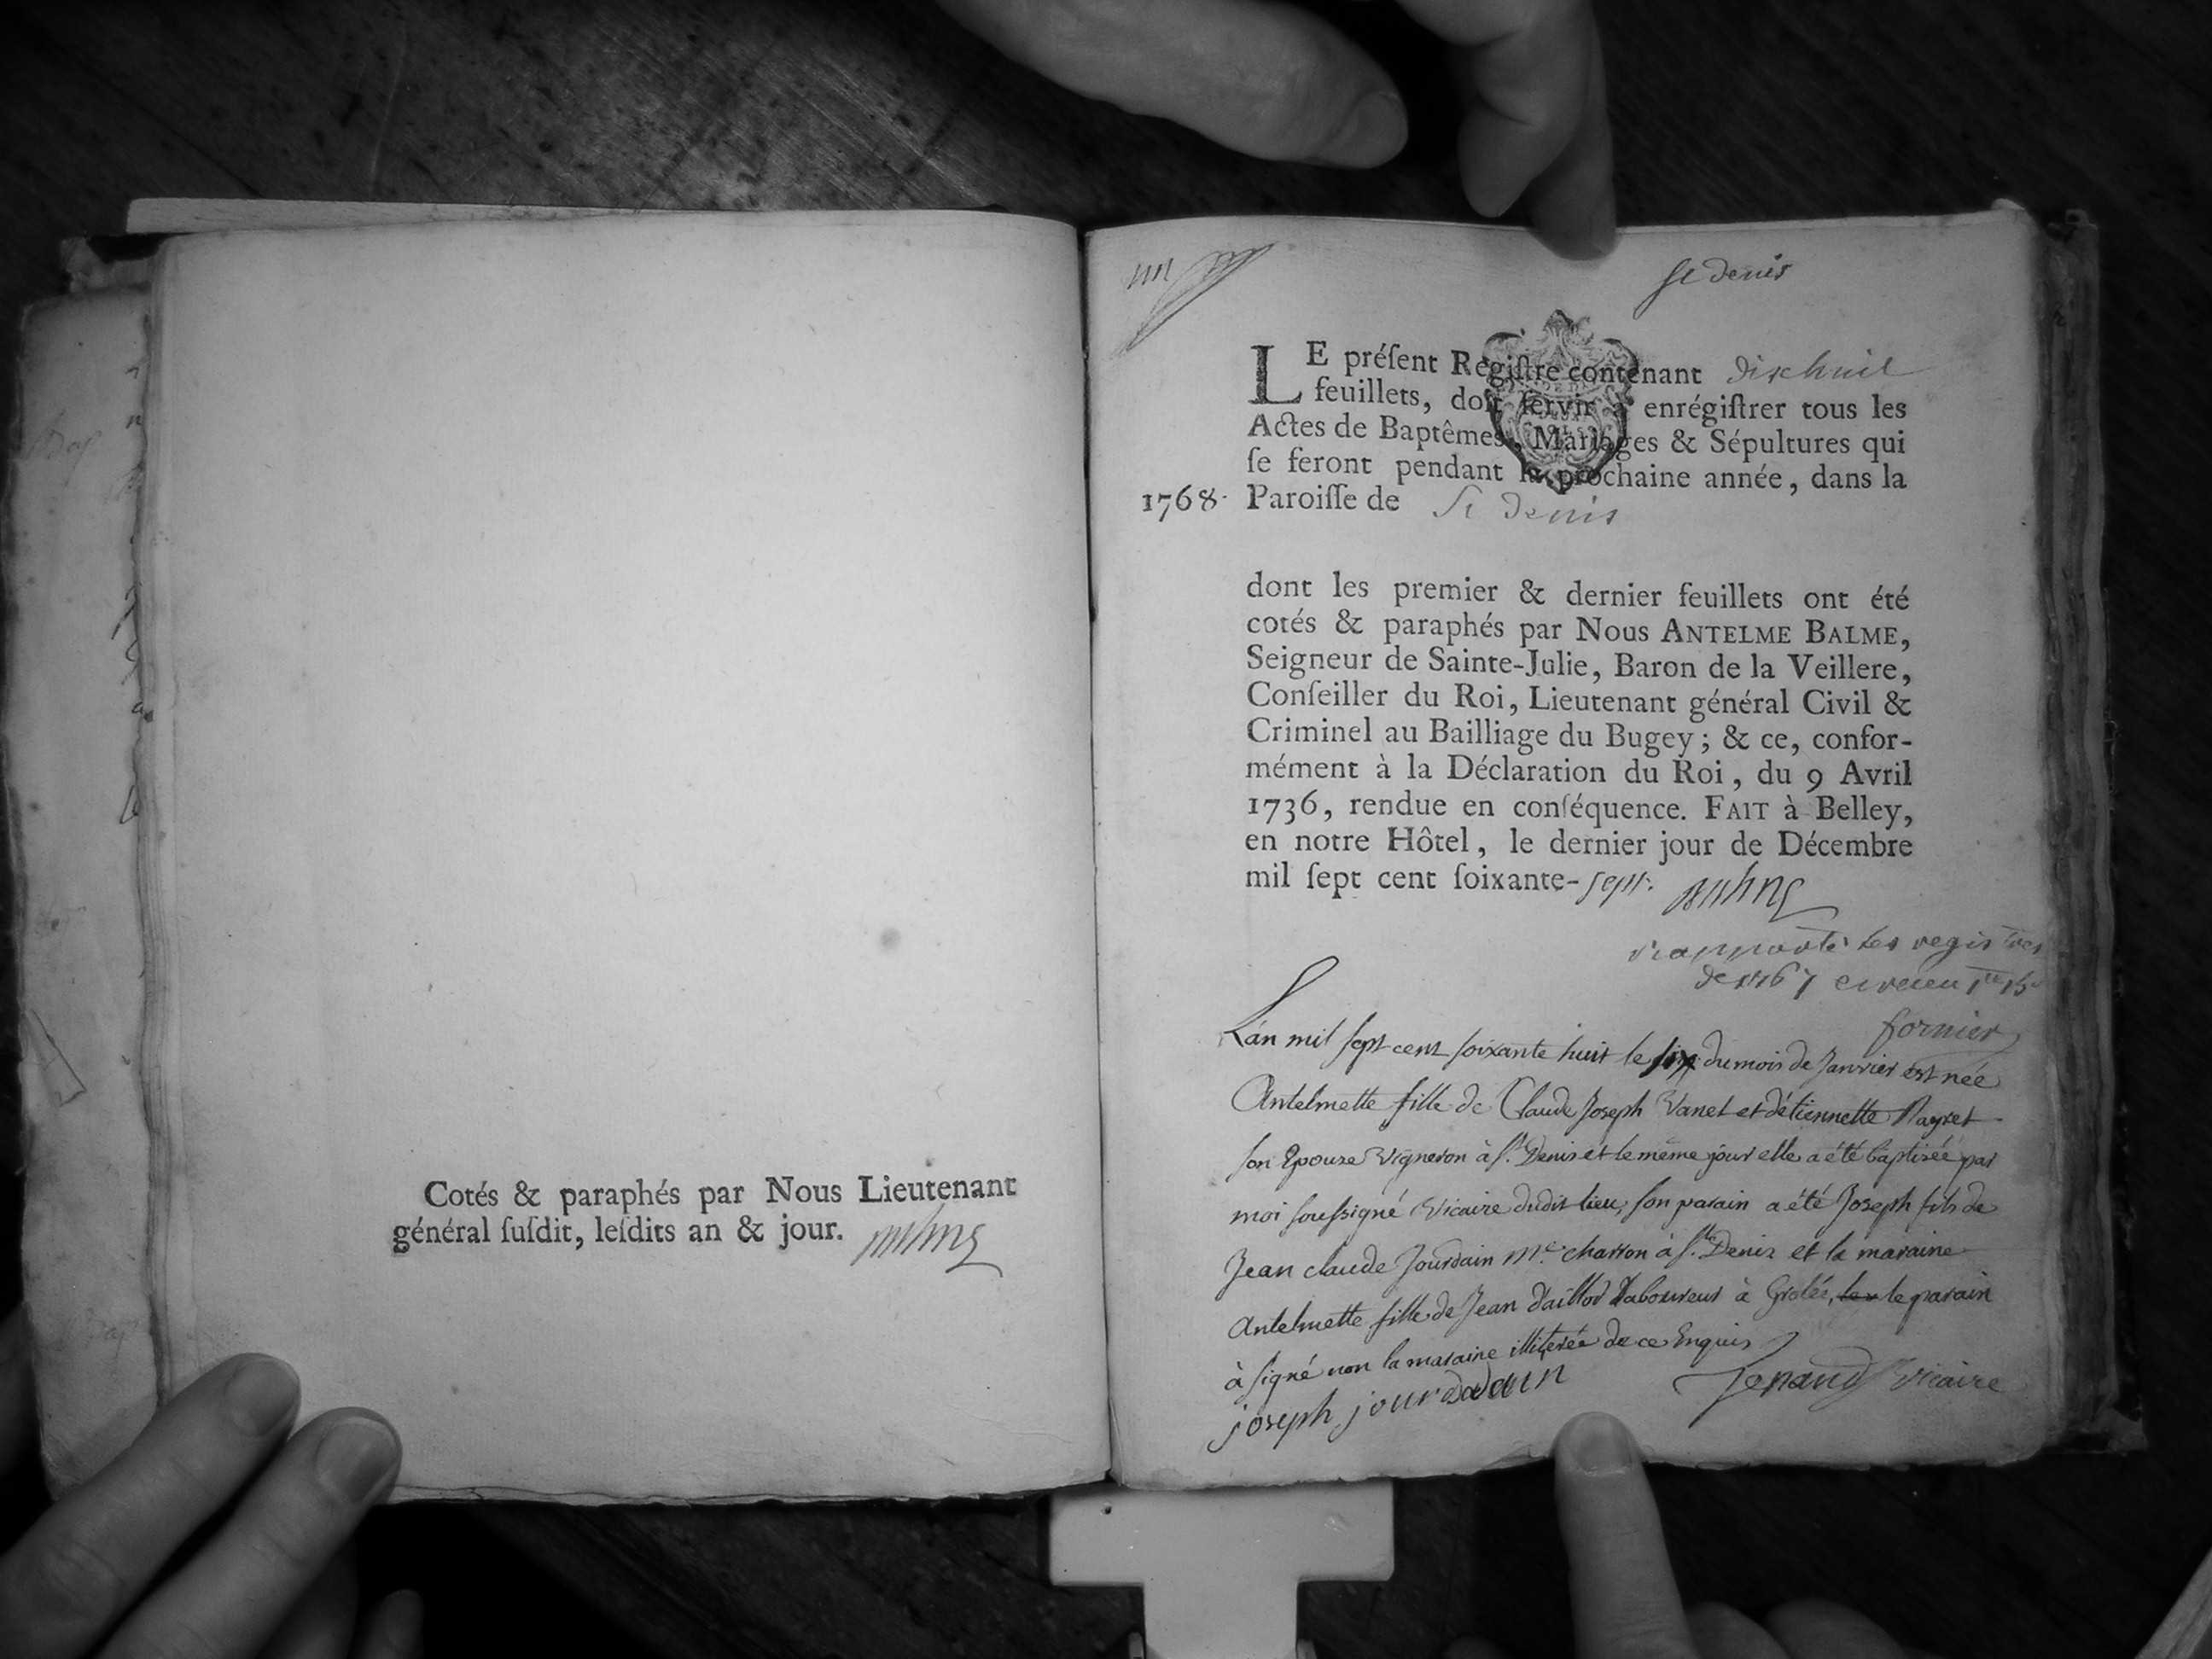 Cotés & paraphés par Nous Lieutenant
général ſuſdit, leſdits an & jour.
St Denis
LE préſent Regiſtre contenant dixhuit
feuillets, doit ſervir à enrégiſtrer tous les
Actes de Baptêmes, Mariages & Sépultures qui
ſe feront pendant la prochaine année, dans la
1768. Paroiſſe de St Denis
dont les premier & dernier feuillets ont été
cotés & paraphés par Nous ANTELME BALME,
Seigneur de Sainte-Julie, Baron de la Veillere,
Conſeiller du Roi, Lieutenant général Civil &
Criminel au Bailliage du Bugey; & ce, confor-
mément à la Déclaration du Roi, du 9 Avril
1736, rendue en conſéquence. FAIT à Belley,
en notre Hôtel, le dernier jour de Décembre
mil ſept cent ſoixante-sept.
rapporté les registres
de 1767 et receu
fornier
Lán mil sept cent soixante huit le six du mois de Janvier est née
Antelmette fille de Claude Joseph Vanet et détiennette
son Epouze vigneron à St. Denis et le même jour elle a été baptisée par
moi soussigné Vicaire dudit lieu, son parain a été Joseph fils de
Jean claude Jourdain Me. charron à St. Denis et la maraine
Antelmette fille de Jean Laboureur à Grolée, le parain
à signé non la maraine illiterée de ce Enquis
joseph jourdain Vicaire